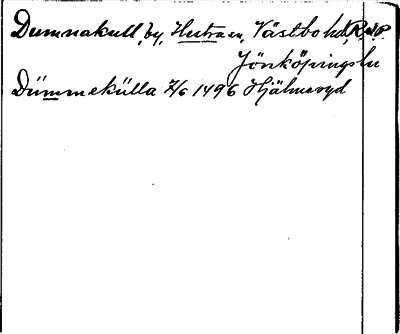 Dumnakull, by, Hutra sn, Västbo hd,
Jönköpings ln
Dümmekülla 7/6 1496 Hjälmseryd